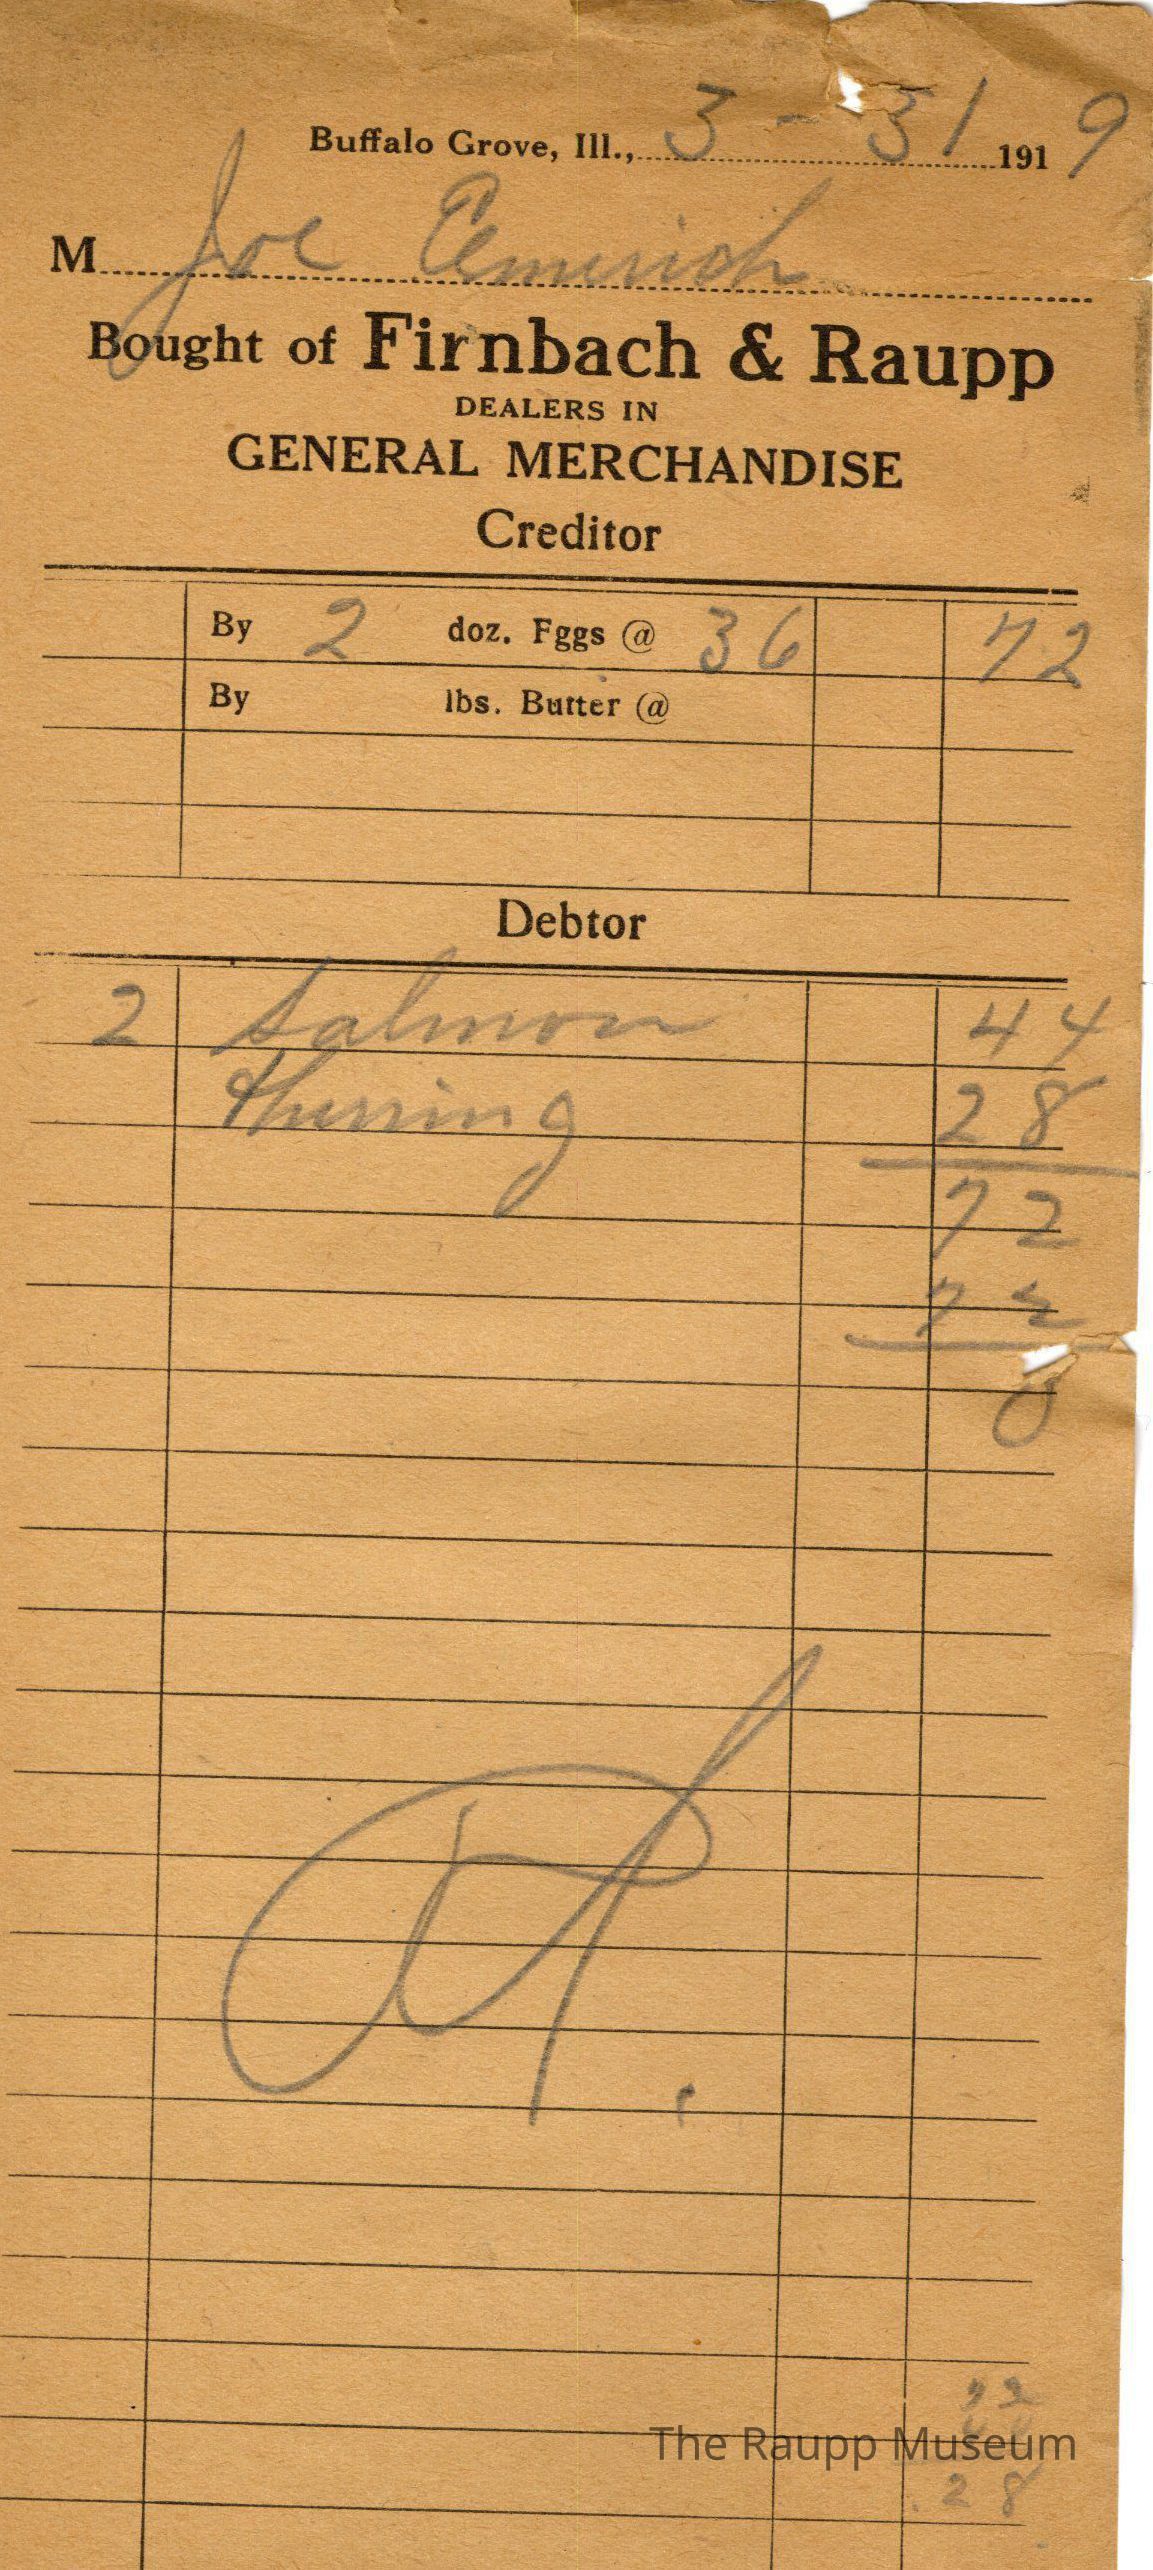 Buffalo Grove, Ill., 3 - 31 1919
M Joe Emerich
Bought of Firnbach & Raupp
DEALERS IN
GENERAL MERCHANDISE
Creditor
By 2 doz. Fggs @ 36 72
By lbs. Butter @
Debtor
2 Salmon 44
Herring 28
72
72
0
The Raupp Museum
28